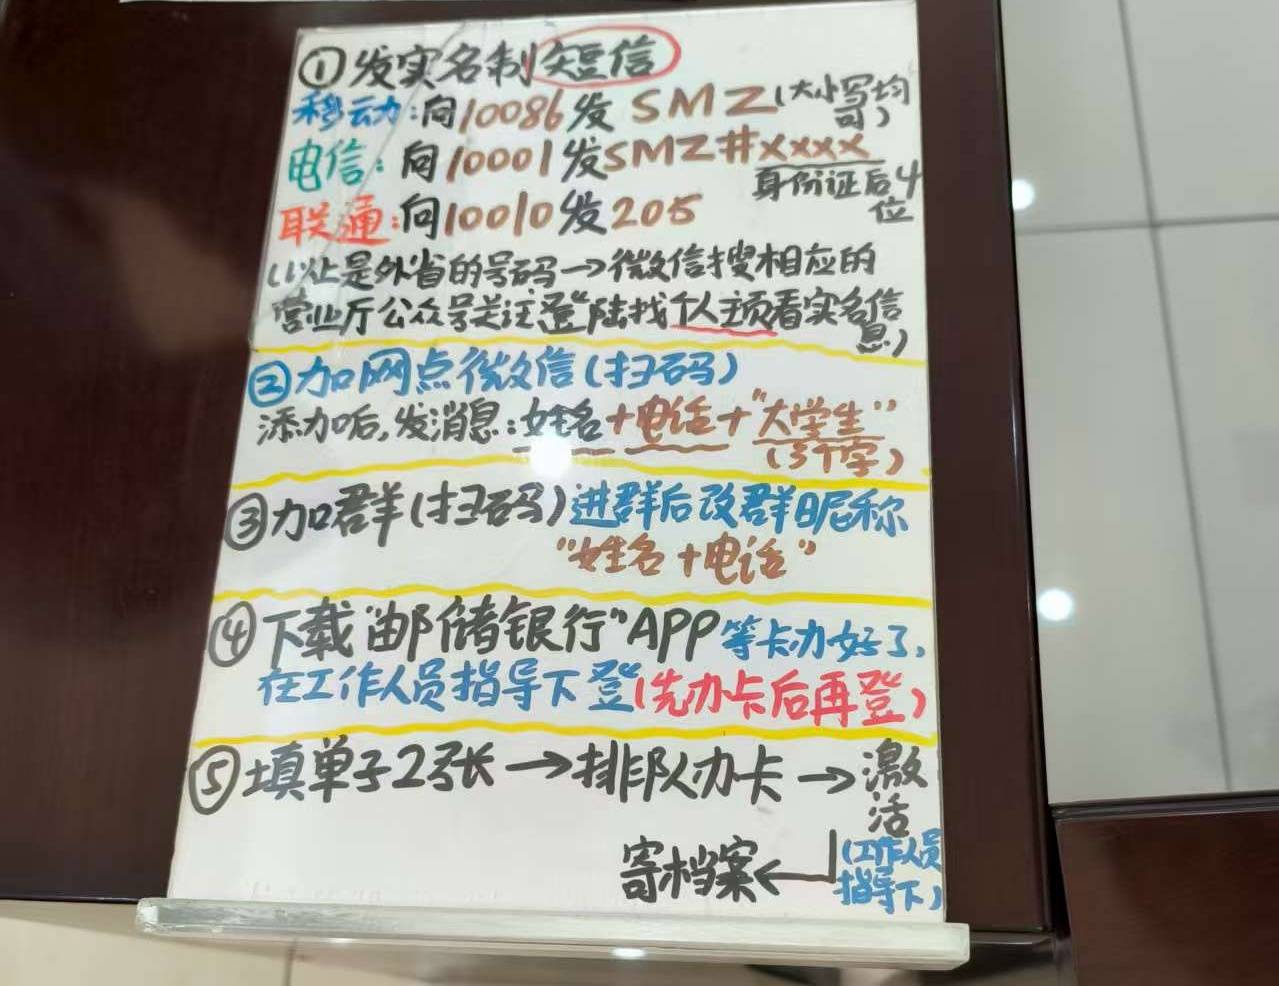 ①发实名制短信
移动:向10086发 SMZ(大小写均可)
电信:向10001发SMZ#××××
身份证后4位
联通:向10010发205
(以上是外省的号码→微信搜相应的
营业厅公众号关注登陆找个人主页看实名信息)
②加网点微信(扫码)
添加后,发消息:姓名+电话+"大学生"
(3个字)
③加群(扫码)进群后改群昵称
"姓名+电话"
④下载"邮储银行"APP等卡办好了,
在工作人员指导下登(先办卡后再登)
⑤填单子2张→排队办卡→激活
(工作人员指导下)
寄档案←